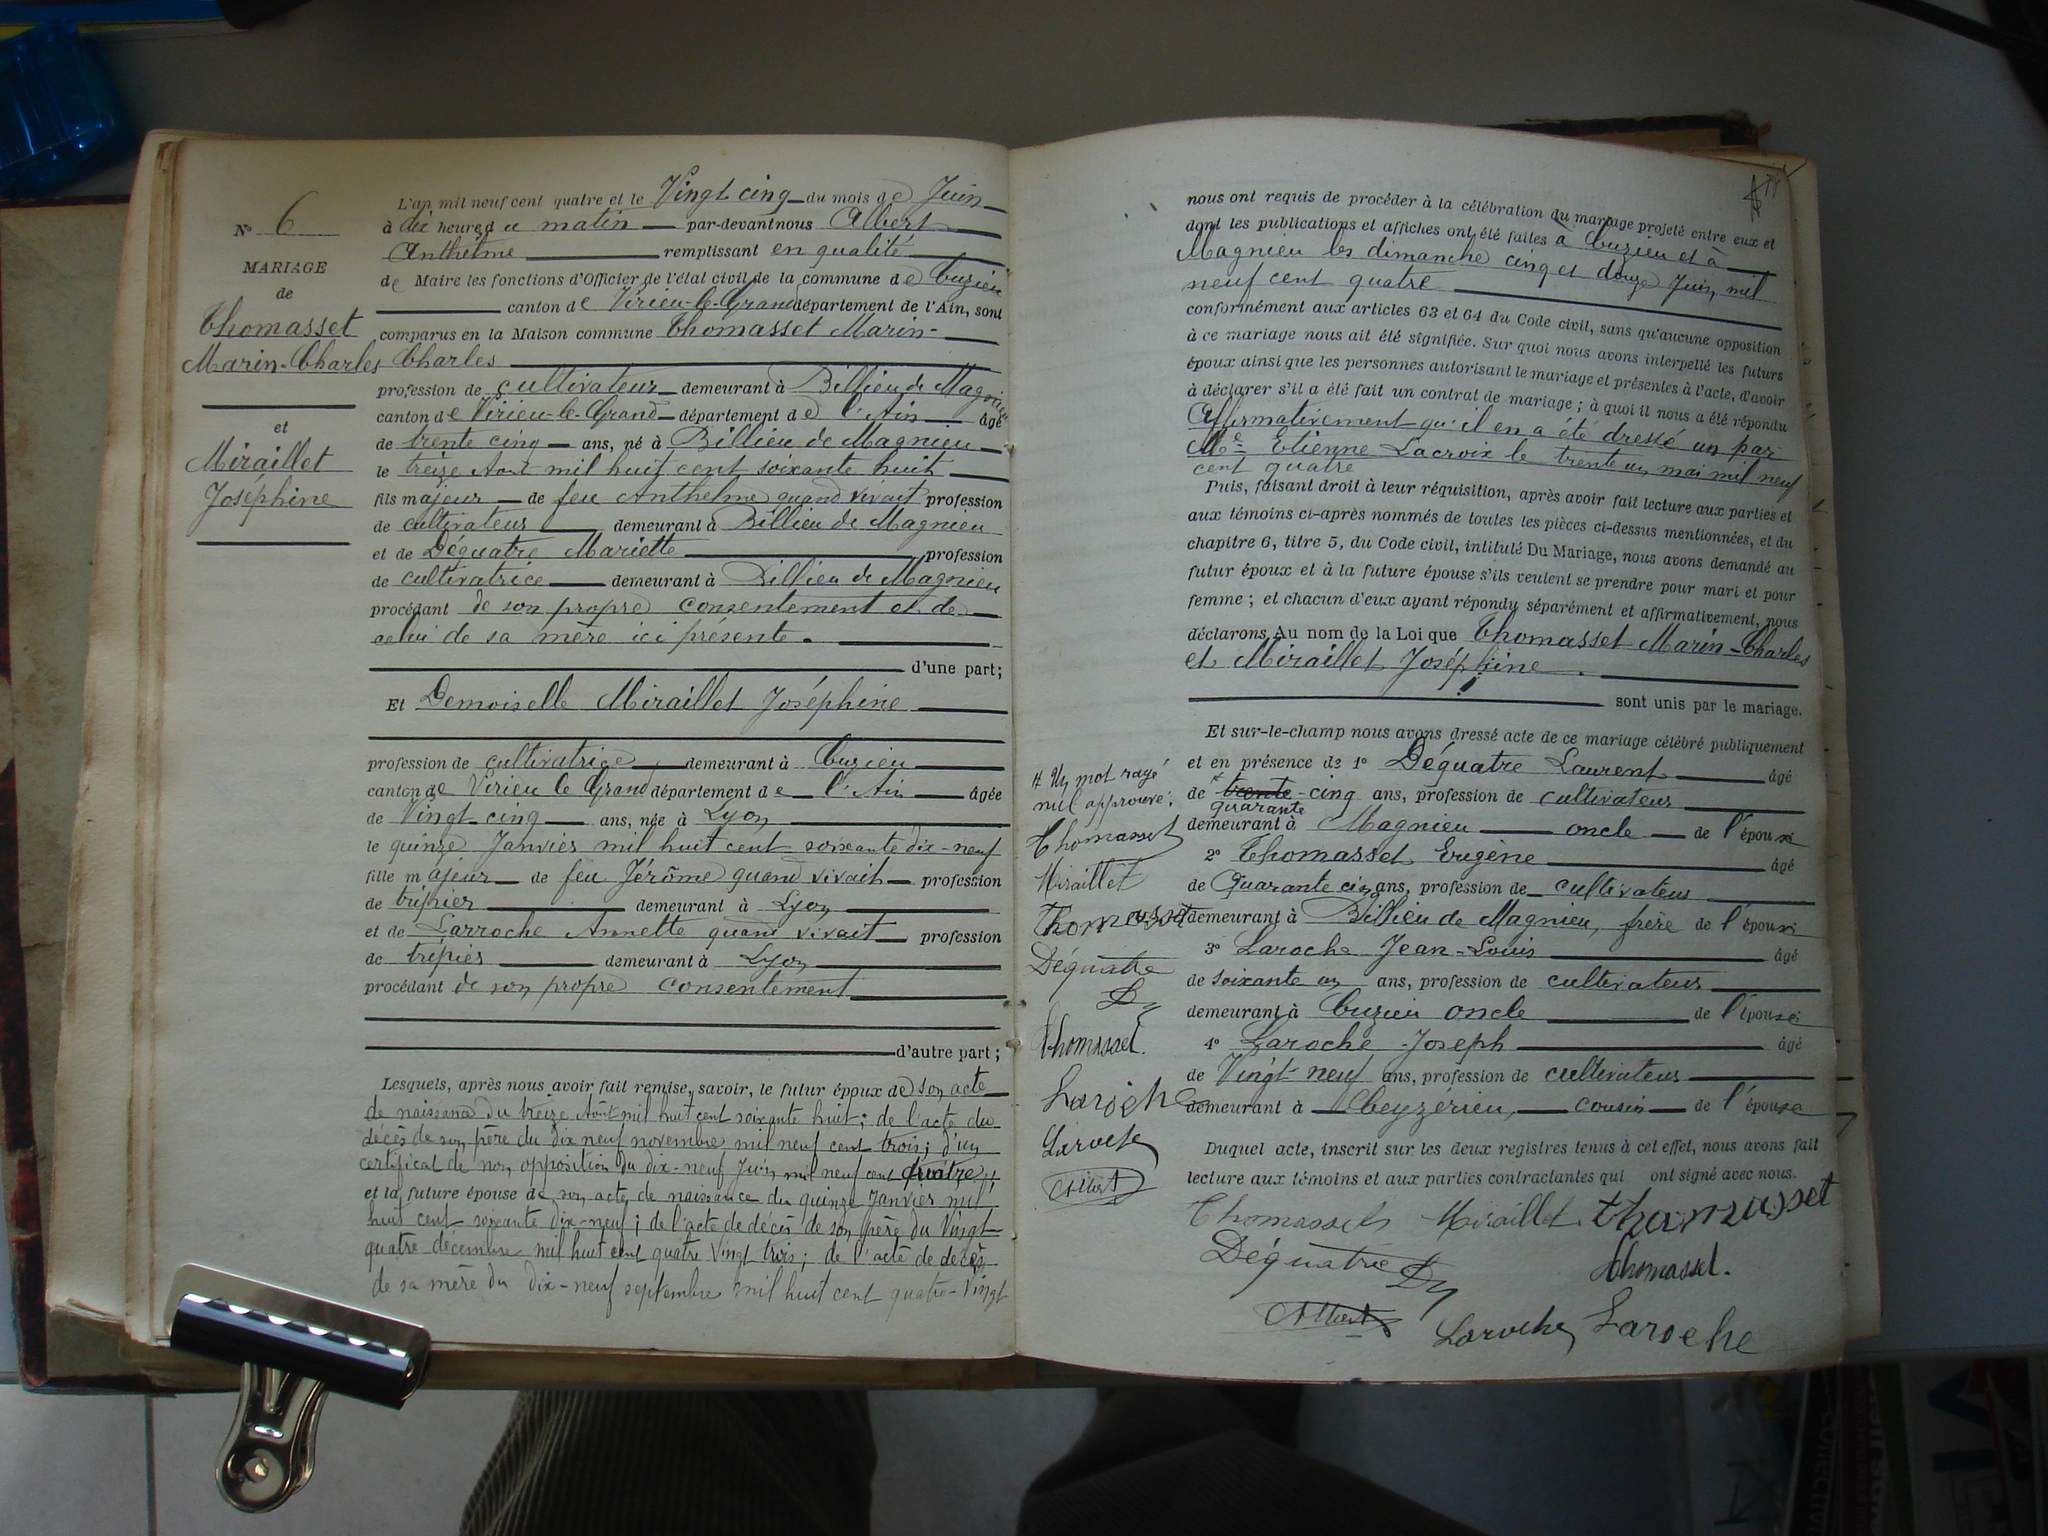 N° 6
MARIAGE
de
Thomasset
Marin-Charles
et
Miraillet
Joséphine
L'an mil neuf cent quatre et le Vingt cinq du mois de Juin
à dix heures du matin par-devant nous Albert
Anthelme remplissant en qualité
de Maire les fonctions d'Officier de l'état civil de la commune de Cuzieu
canton de Virieu-le-Grand département de l'Ain, sont
comparus en la Maison commune Thomasset Marin-
Charles
profession de cultivateur demeurant à Billieu de Magnieu
canton de Virieu-le-Grand département de l'Ain âgé
de trente cinq ans, né à Billieu de Magnieu
le treize Août mil huit cent soixante huit
fils majeur de feu Anthelme quand vivait profession
de cultivateur demeurant à Billieu de Magnieu
et de Déquatre Mariette profession
de cultivatrice demeurant à Billieu de Magnieu
procédant de son propre consentement et de
celui de sa mère ici présente.
d'une part;
Et Demoiselle Miraillet Joséphine
profession de cultivatrice demeurant à Cuzieu
canton de Virieu le Grand département de l'Ain âgée
de Vingt-cinq ans, née à Lyon
le quinze Janvier mil huit cent soixante dix-neuf
fille majeur de feu Jérôme quand vivait profession
de tripier demeurant à Lyon
et de Larroche Annette quand vivait profession
de tripier demeurant à Lyon
procédant de son propre consentement
d'autre part;
Lesquels, après nous avoir fait remise, savoir, le futur époux de son acte
de naissance du treize Août mil huit cent soixante huit; de l'acte du
décès de son père du dix neuf novembre mil neuf cent trois; d'un
certificat de non opposition du dix-neuf Juin mil neuf cent quatre;
et la future épouse de son acte de naissance du quinze Janvier mil
huit cent soixante dix-neuf; de l'acte de décès de son père du Vingt-
quatre décembre mil huit cent quatre vingt trois; de l'acte de décès
de sa mère du dix-neuf septembre mil huit cent quatre-vingt
nous ont requis de procéder à la célébration du mariage projeté entre eux et
dont les publications et affiches ont été faites à Cuzieu et à
Magnieu les dimanche cinq et douze Juin mil
neuf cent quatre
conformément aux articles 63 et 64 du Code civil, sans qu'aucune opposition
à ce mariage nous ait été signifiée. Sur quoi nous avons interpellé les futurs
époux ainsi que les personnes autorisant le mariage et présentes à l'acte, d'avoir
à déclarer s'il a été fait un contrat de mariage; à quoi il nous a été répondu
Affirmativement qu'il en a été dressé un par
Me Etienne Lacroix le trente un mai mil neuf
cent quatre
Puis, faisant droit à leur réquisition, après avoir fait lecture aux parties et
aux témoins ci-après nommés de toutes les pièces ci-dessus mentionnées, et du
chapitre 6, titre 5, du Code civil, intitulé Du Mariage, nous avons demandé au
futur époux et à la future épouse s'ils veulent se prendre pour mari et pour
femme; et chacun d'eux ayant répondu séparément et affirmativement, nous
déclarons Au nom de la Loi que Thomasset Marin-Charles
et Miraillet Joséphine.
sont unis par le mariage.
Et sur-le-champ nous avons dressé acte de ce mariage célébré publiquement
et en présence de 1° Déquatre Laurent âgé
de trente-cinq ans, profession de cultivateur
quarante
demeurant à Magnieu oncle de l'époux
2° Thomasset Eugène âgé
de Quarante cinq ans, profession de cultivateur
demeurant à Billieu de Magnieu, frère de l'époux
3° Laroche Jean-Louis âgé
de soixante un ans, profession de cultivateur
demeurant à Cuzieu oncle de l'épouse
4° Laroche Joseph âgé
de Vingt neuf ans, profession de cultivateur
demeurant à Ceyzérieu, cousin de l'épouse
Duquel acte, inscrit sur les deux registres tenus à cet effet, nous avons fait
lecture aux témoins et aux parties contractantes qui ont signé avec nous.
Thomasset Miraillet Thomasset
Déquatre Thomasset.
Albert Laroche Laroche
Un mot rayé
nul approuvé.
Thomasset
Miraillet
Thomasset
Déquatre
Thomasset.
Laroche
Laroche
Albert